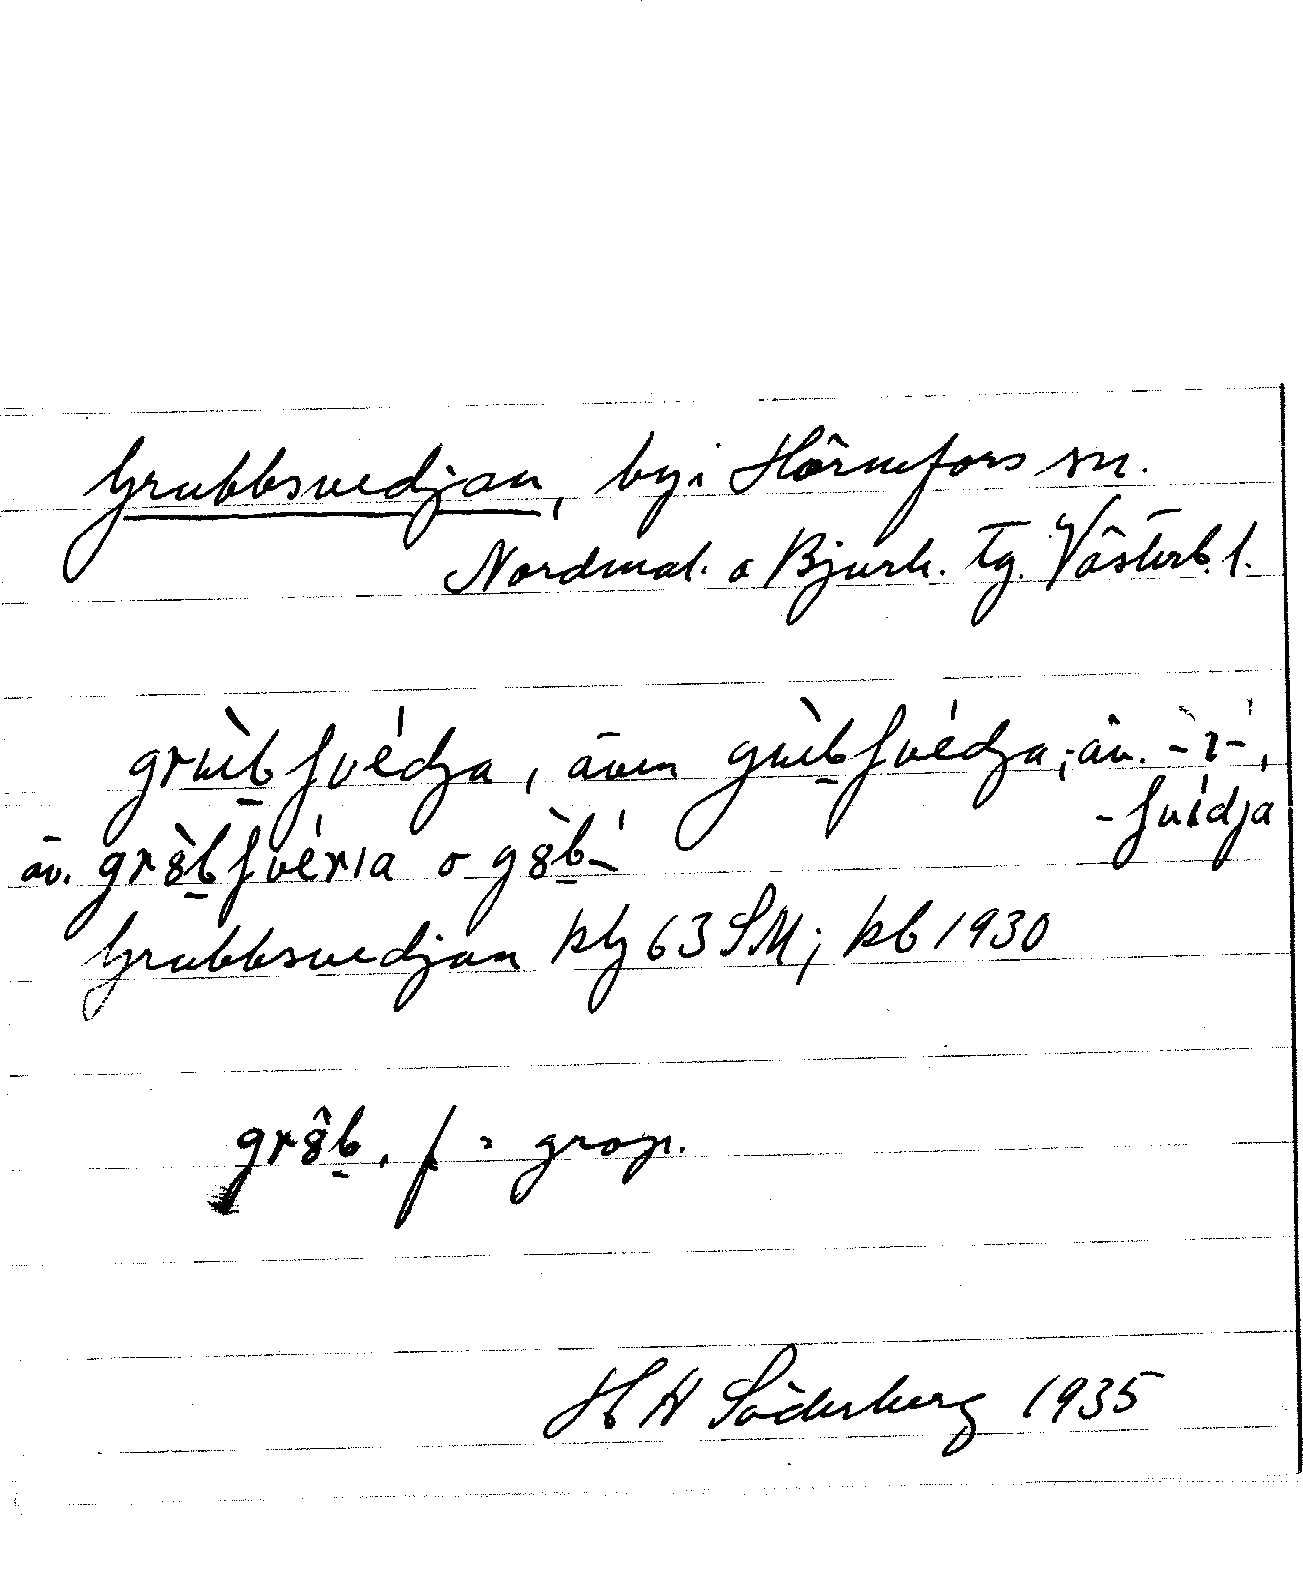 Grubbsvedjan, by i Hörnefors sn.
Nordmal. o Bjurh. Tg. Västerb. l.
grùb̠ſvédja, även gùb̠ſvédja; äv. -ì-́,
-ſvídja
äv. grὸb̠ſvérıa o gὸb̠-́
Grubbsvedjan klg 63 SM; kb 1930
gr8̂b̠. f = grop.
H H Söderberg 1935